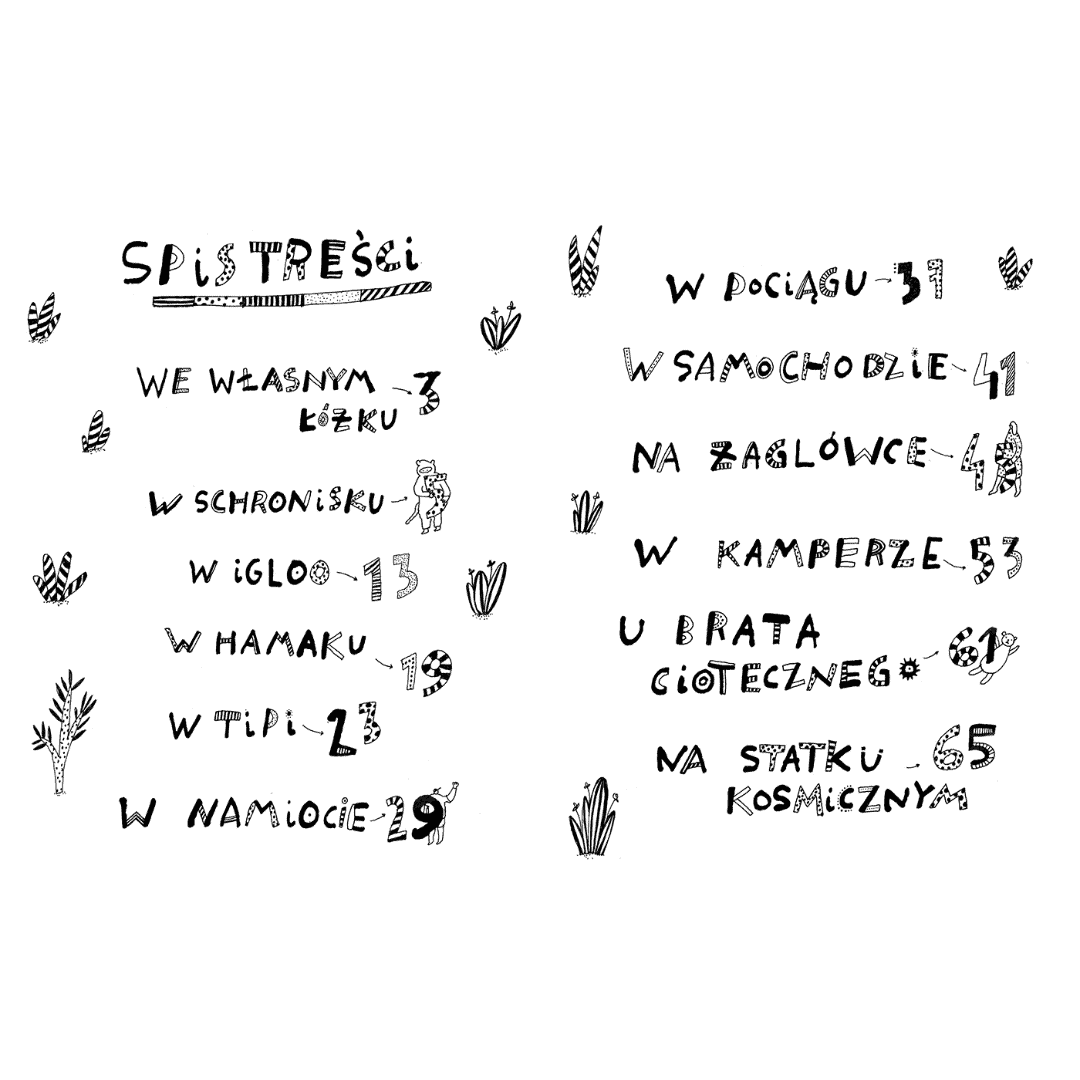 SPIS TREŚCI
WE WŁASNYM → 3
ŁÓŻKU
W SCHRONISKU →
W IGLOO → 13
W HAMAKU → 19
W TIPI → 23
W NAMIOCIE → 29
W POCIĄGU → 31
W SAMOCHODZIE → 41
NA ŻAGLÓWCE →
W KAMPERZE → 53
U BRATA
CIOTECZNEGO → 61
NA STATKU → 65
KOSMICZNYM